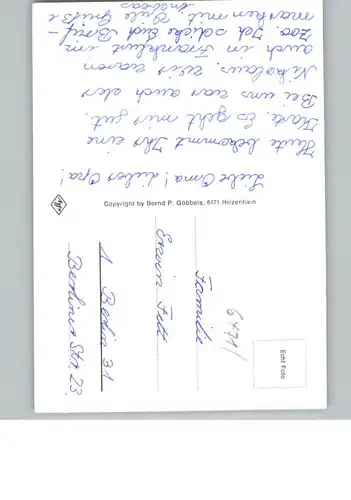 Liebe Oma! Lieber Opa!
Heute bekommt Ihr eine
Karte. Es geht mir gut.
Bei uns war auch der
Nikolaus. Wir waren
auch in Frankfurt im
Zoo. Ich schicke Euch Brief-
marken mit. Viele Grüße
Andreas
Copyright by Bernd P. Göbbels, 6171 Hirzenhain
Familie
Erwin Fett
1 Berlin 31
Berliner Str. 23.
6471/
Echt Foto